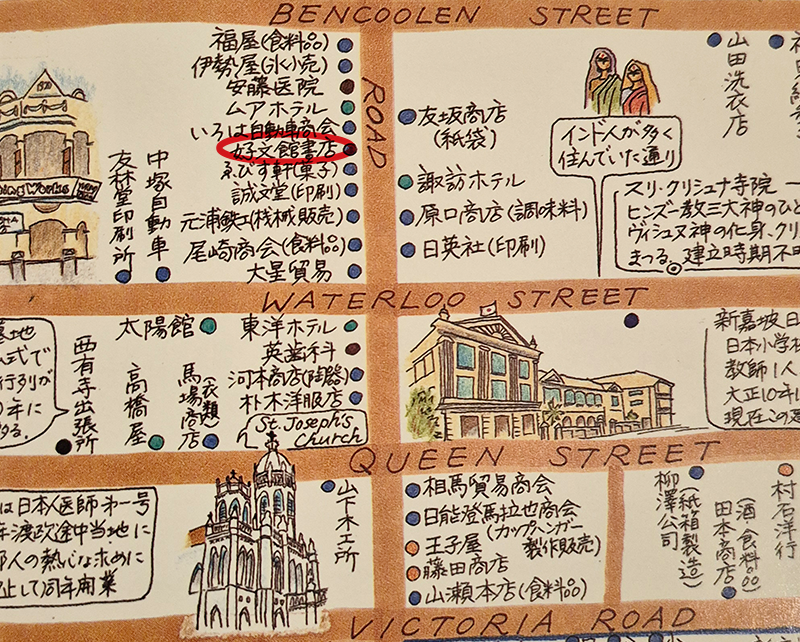 BENCOOLEN STREET
福屋(食料品)
伊勢屋(氷小売)
安藤医院
ムアホテル
いろは自動車商会
好文館書店
ゑびす軒(菓子)
誠文堂(印刷)
元浦鉄工(桟械販売)
尾崎商会(食料品)
大星貿易
中塚自動車
友林堂印刷所
ROAD
友坂商店
(紙袋)
諏訪ホテル
原口商店(調味料)
日英社(印刷)
インド人が多く
住んでいた通り
山田洗衣店
スリ・クリシュナ寺院一
ヒンズー教三大神のひと
ヴィシュヌ神の化身、クリ
まつる。建立時期不明
WATERLOO STREET
墓地
式で
行列が
年に
る。
西有寺出張所
太陽館
高橋屋
馬場商店
(衣類)
東洋ホテル
英歯科
河本商店(陶器)
朴木洋服店
St. Joseph's
Church
新嘉坡日
日本小学校
教師1人
大正10年に
現在この建
QUEEN STREET
は日本人医師オ一号
渡欧途中当地に
邦人の熱心な求めに
止して同年開業
山下木工所
相馬貿易商会
日能登馬拉也商会
(カップヘンガー
製作販売)
王子屋
藤田商店
山瀬本店(食料品)
柳澤公司
(紙箱製造)
田本商店
(酒・食料品)
村石洋行
VICTORIA ROAD